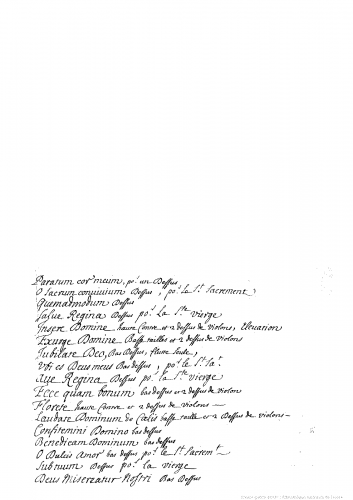 Paratum cor meum, po.r un Dessus
O Sacrum conuiuium Dessus, po.r le S.t Sacrement
Quemadmodum Dessus
Salue Regina Dessus po.r la S.te vierge
Domine haute Contre et 2 dessus de violons, Eleuation
Exurge Domine Basse tailles et 2 dessus de violons
Jubilate Deo, Bas Dessus, flute Seule,
Vbi es Deus meus Bas dessus, po.r le S.t Sa.t
Aue Regina Dessus po.r la S.te vierge
Ecce quam bonum bas dessus et 2 dessus de violon
Florete haute Contre et 2 dessus de violons
Laudate Dominum de Cælis basse taille et 2 Dessus de violons
Confitemini Domino bas dessus
Benedicam Dominum bas dessus
O Dulcis Amor bas dessus po.r le S.t Sacrem.t
Sub nuum Dessus po.r la vierge
Deus Misereatur Nostri Bas Dessus